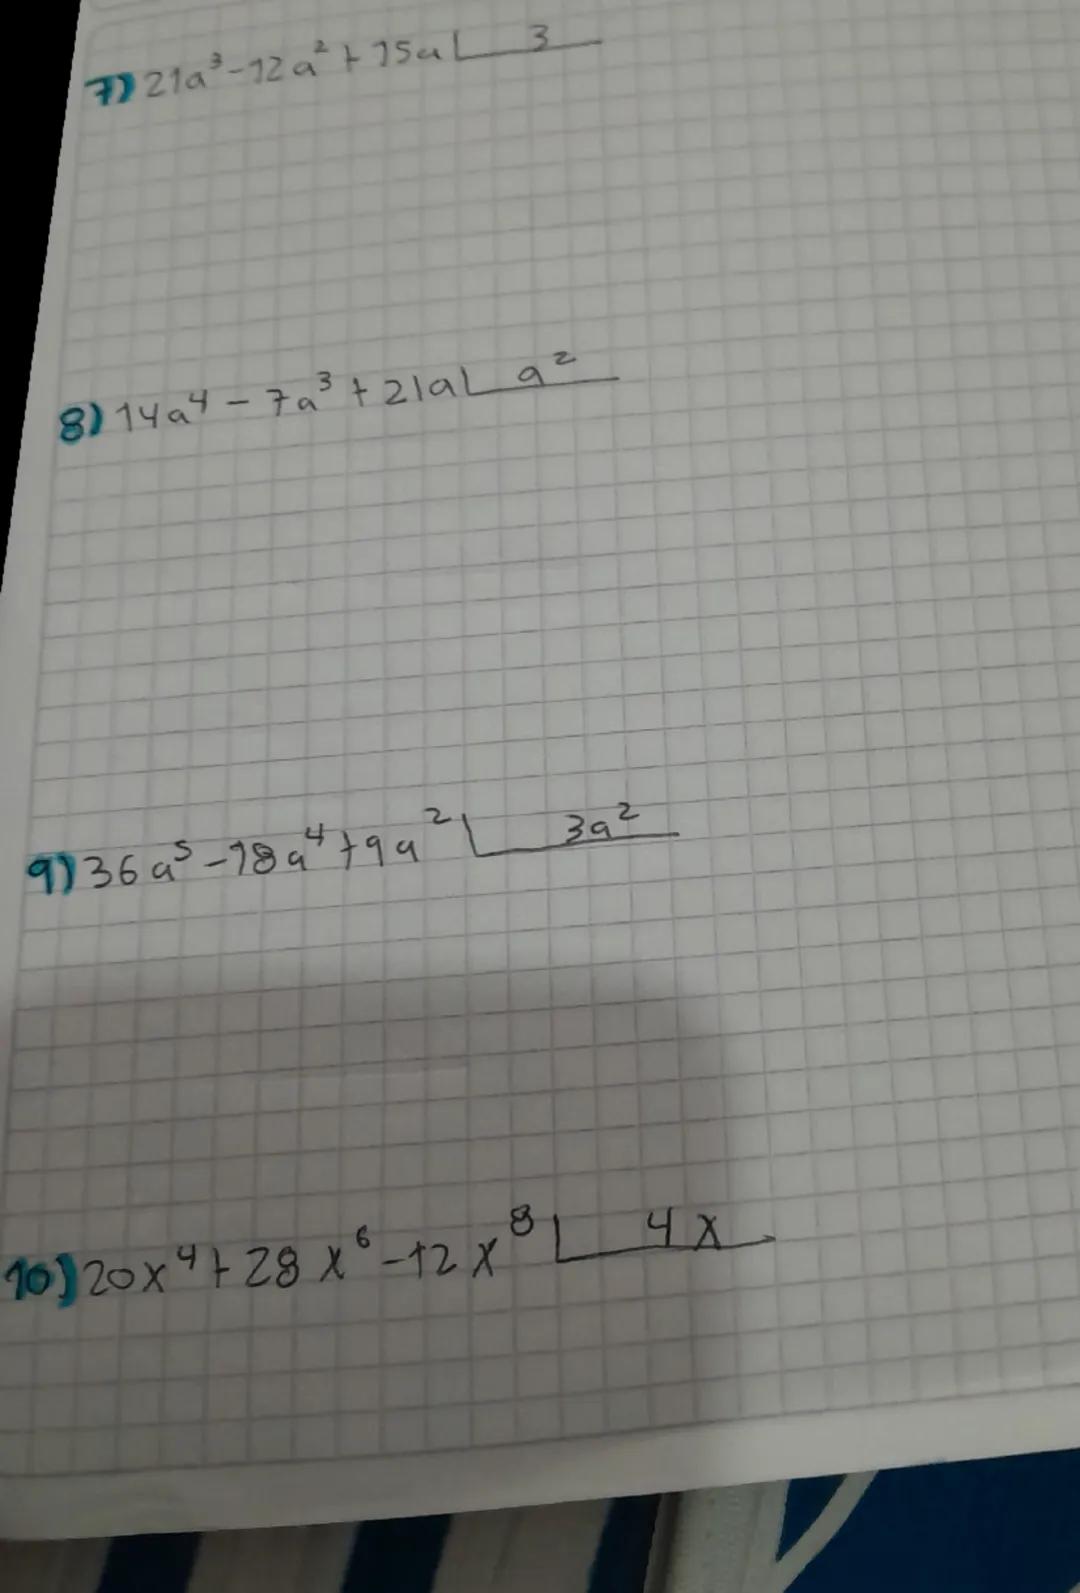 7) 21a³-12a²+15a⌊ 3
8) 14a⁴-7a³+21a⌊ a²
9) 36a⁵-18a⁴+9a²⌊ 3a²
10) 20x⁴+28x⁶-12x⁸⌊ 4x